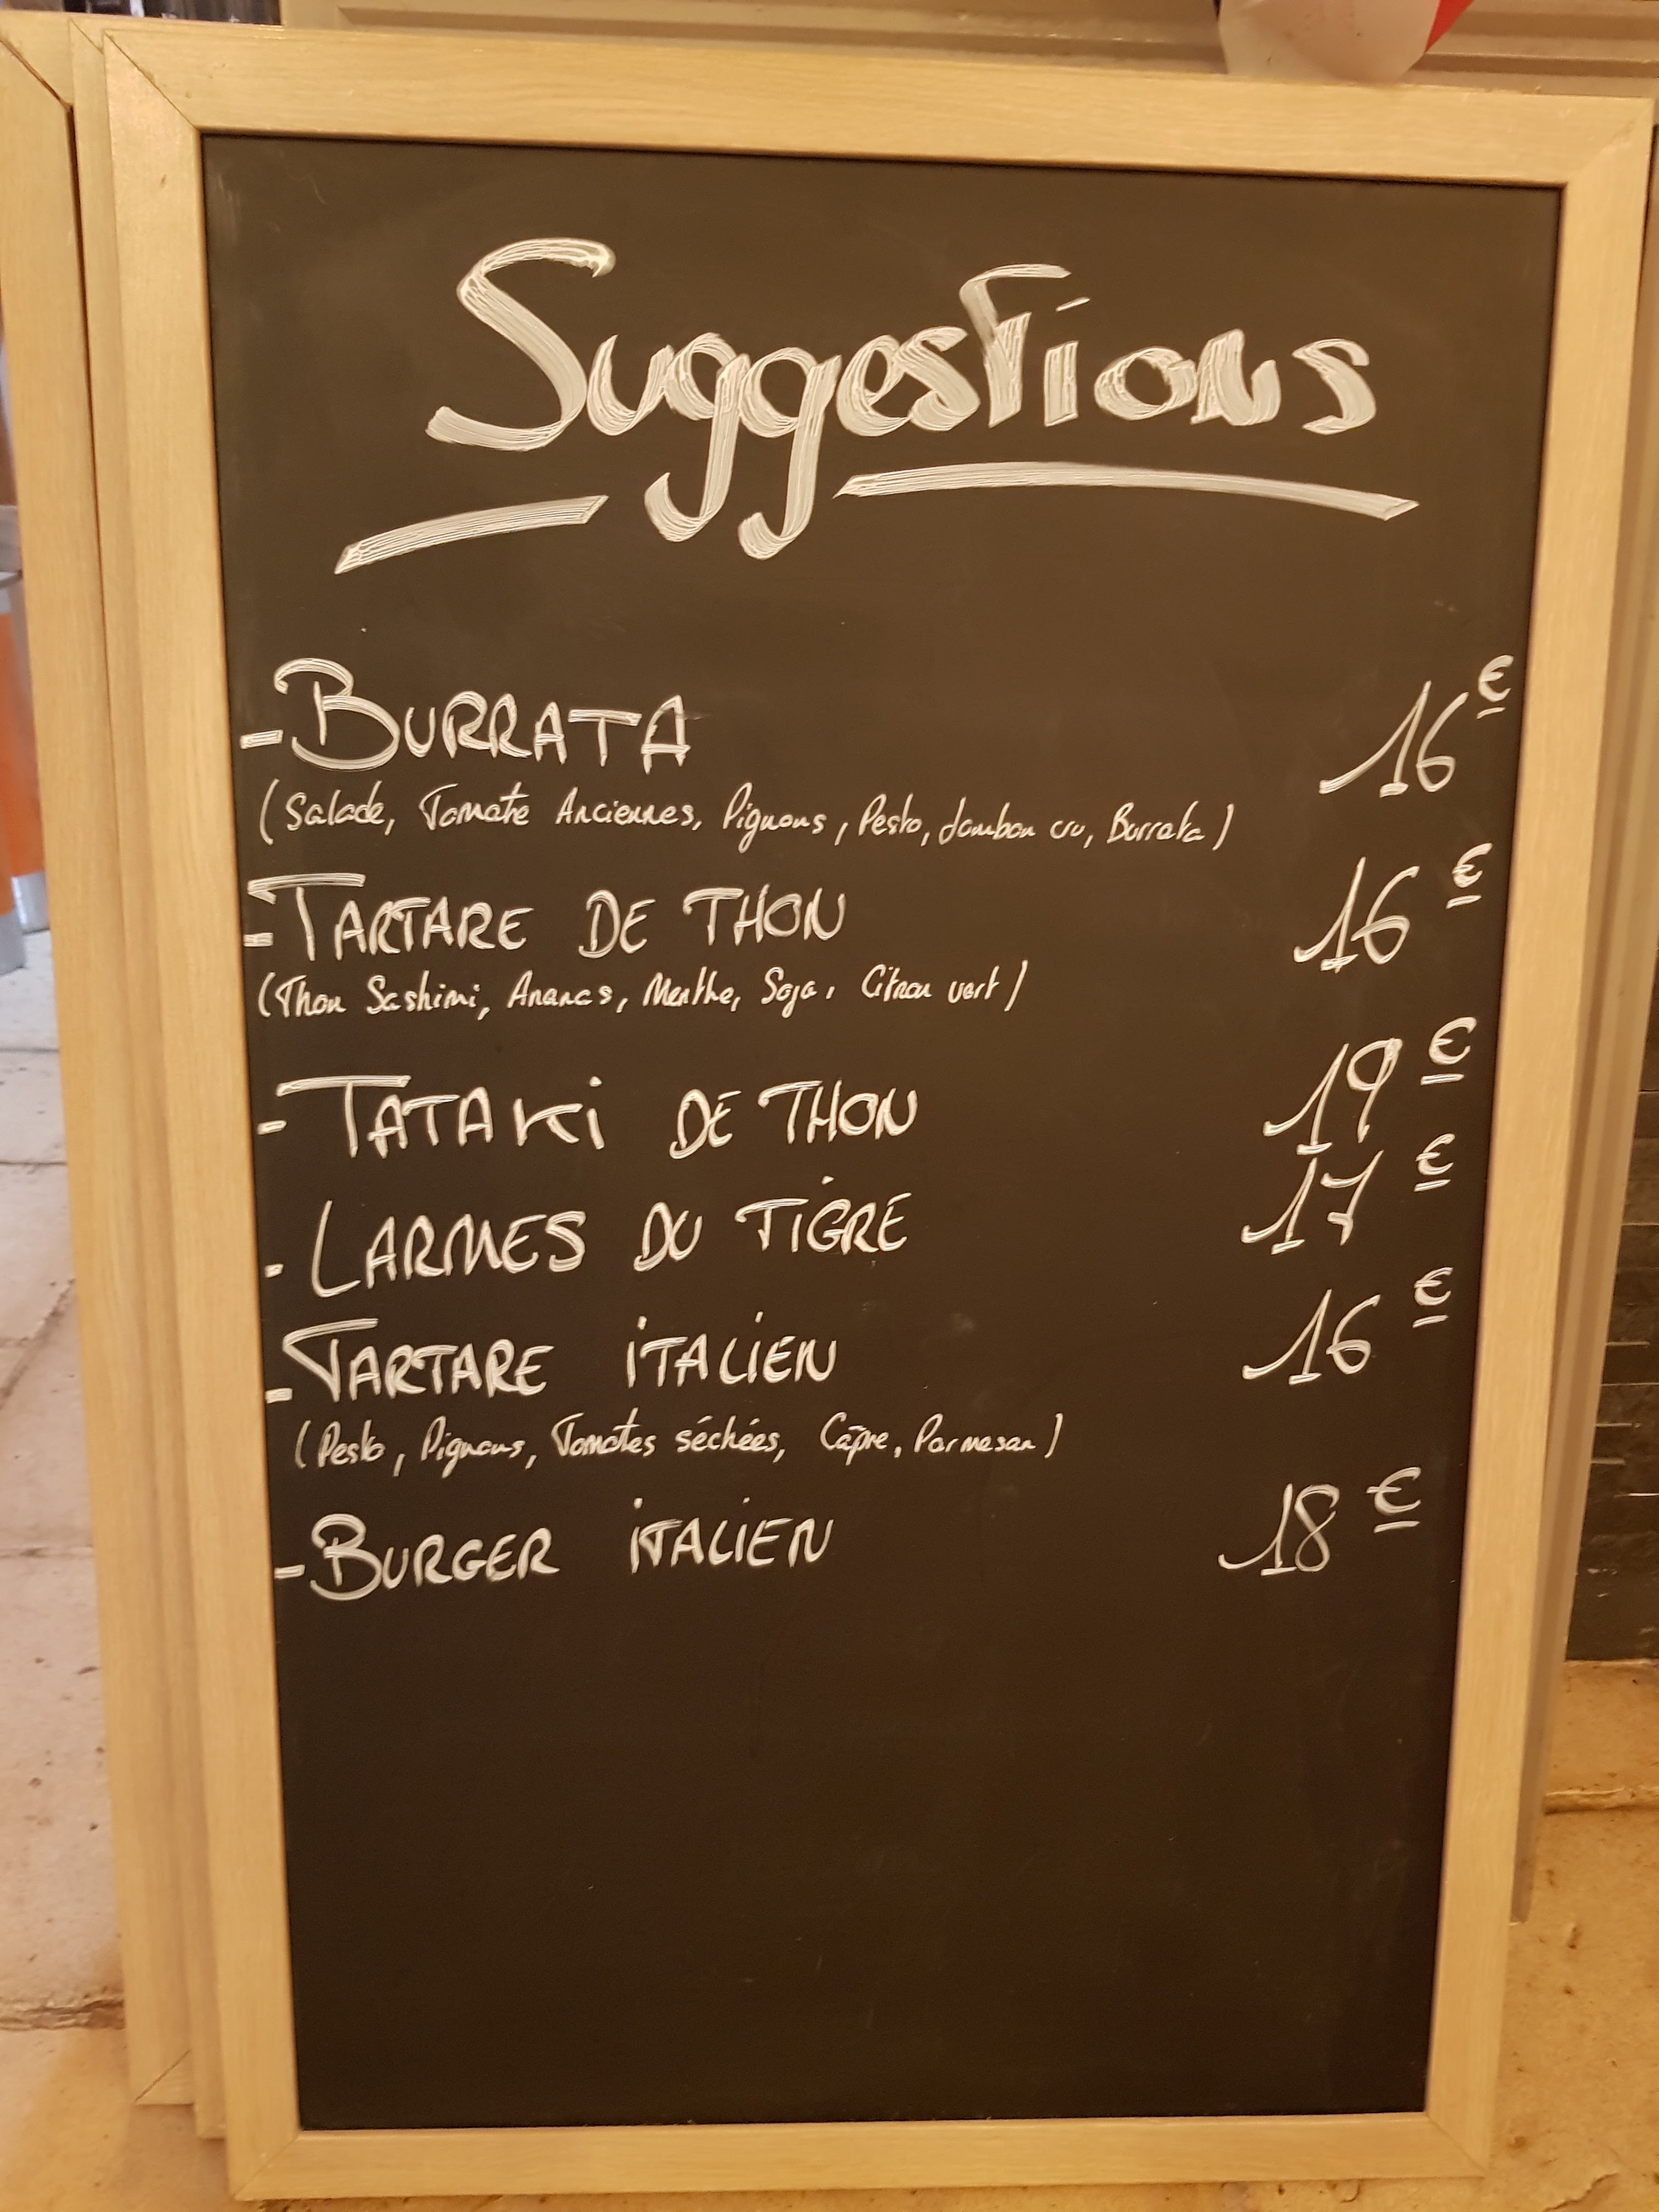 Suggestions
- BURRATA 16€
(Salade, Tomate Anciennes, Pignons, Pesto, Jambon cru, Burrata)
- TARTARE DE THON 16€
(Thon Sashimi, Ananas, Menthe, Soja, Citron vert)
- TATAKI DE THON 19€
- LARMES DU TIGRE 17€
- TARTARE ITALIEN 16€
(Pesto, Pignons, Tomates séchées, Câpre, Parmesan)
- BURGER ITALIEN 18€